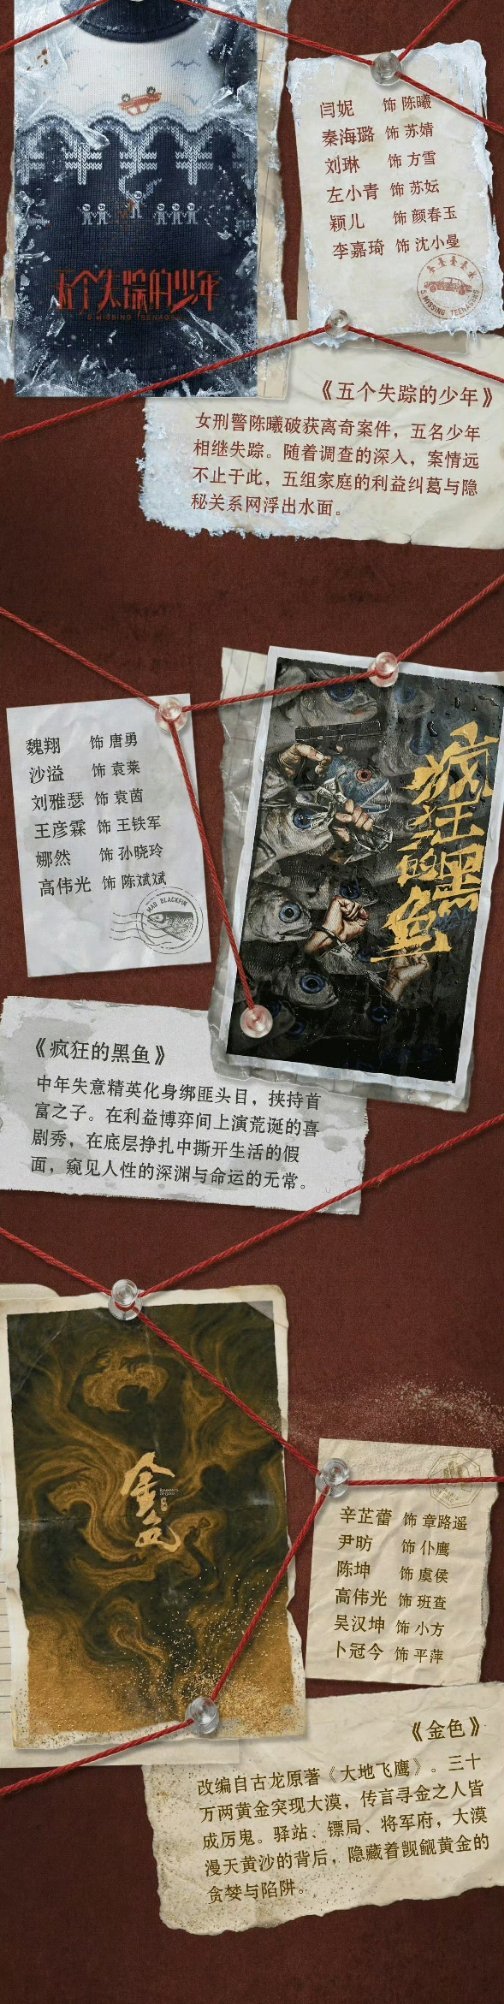 闫妮 饰 陈曦
秦海璐 饰 苏婧
刘琳 饰 方雪
左小青 饰 苏妘
颖儿 饰 颜春玉
李嘉琦 饰 沈小曼
5 MISSING TEENAGERS
五个失踪的少年
5 MISSING TEENAGERS
《五个失踪的少年》
女刑警陈曦破获离奇案件，五名少年
相继失踪。随着调查的深入，案情远
不止于此，五组家庭的利益纠葛与隐
秘关系网浮出水面。
魏翔 饰 唐勇
沙溢 饰 袁莱
刘雅瑟 饰 袁茵
王彦霖 饰 王铁军
娜然 饰 孙晓玲
高伟光 饰 陈斌斌
MAD BLACKFIN
疯狂的黑鱼
《疯狂的黑鱼》
中年失意精英化身绑匪头目，挟持首
富之子。在利益博弈间上演荒诞的喜
剧秀，在底层挣扎中撕开生活的假
面，窥见人性的深渊与命运的无常。
金色
辛芷蕾 饰 章路遥
尹昉 饰 仆鹰
陈坤 饰 虞侯
高伟光 饰 班查
吴汉坤 饰 小方
卜冠今 饰 平萍
《金色》
改编自古龙原著《大地飞鹰》。三十
万两黄金突现大漠，传言寻金之人皆
成厉鬼。驿站、镖局、将军府，大漠
漫天黄沙的背后，隐藏着觊觎黄金的
贪婪与陷阱。